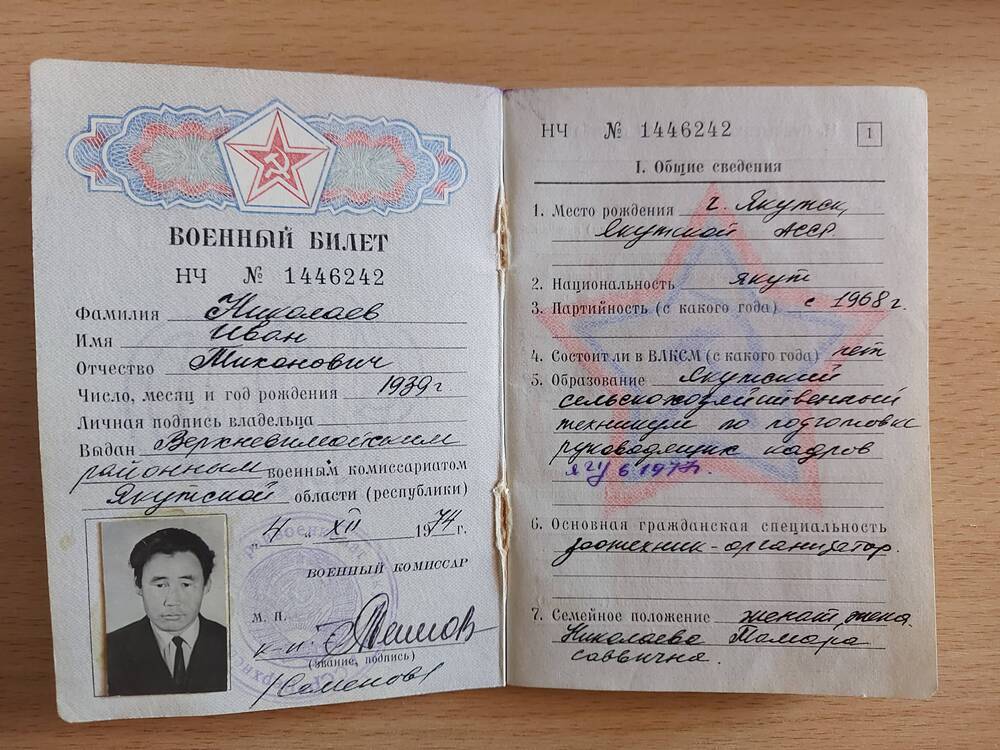 ВОЕННЫЙ БИЛЕТ
НЧ № 1446242
Фамилия Николаев
Имя Иван
Отчество Миконович
Число, месяц и год рождения 1939 г.
Личная подпись владельца
Выдан Верхневилюйским
районным военным комиссариатом
Якутской области (республики)
"4" XII 1974 г.
ВОЕННЫЙ КОМИССАР
М. П.
к-н.
(звание, подпись)
/Семенов/
НЧ № 1446242
1
I. Общие сведения
1. Место рождения г. Якутск,
Якутской АССР.
2. Национальность якут
3. Партийность (с какого года) с 1968 г.
4. Состоит ли в ВЛКСМ (с какого года) нет
5. Образование Якутский
сельскохозяйственный
техникум по подготовке
руководящих кадров
ЯГУ в 1977г.
6. Основная гражданская специальность
зоотехник-организатор.
7. Семейное положение женат жена.
Николаева Тамара
Саввична.